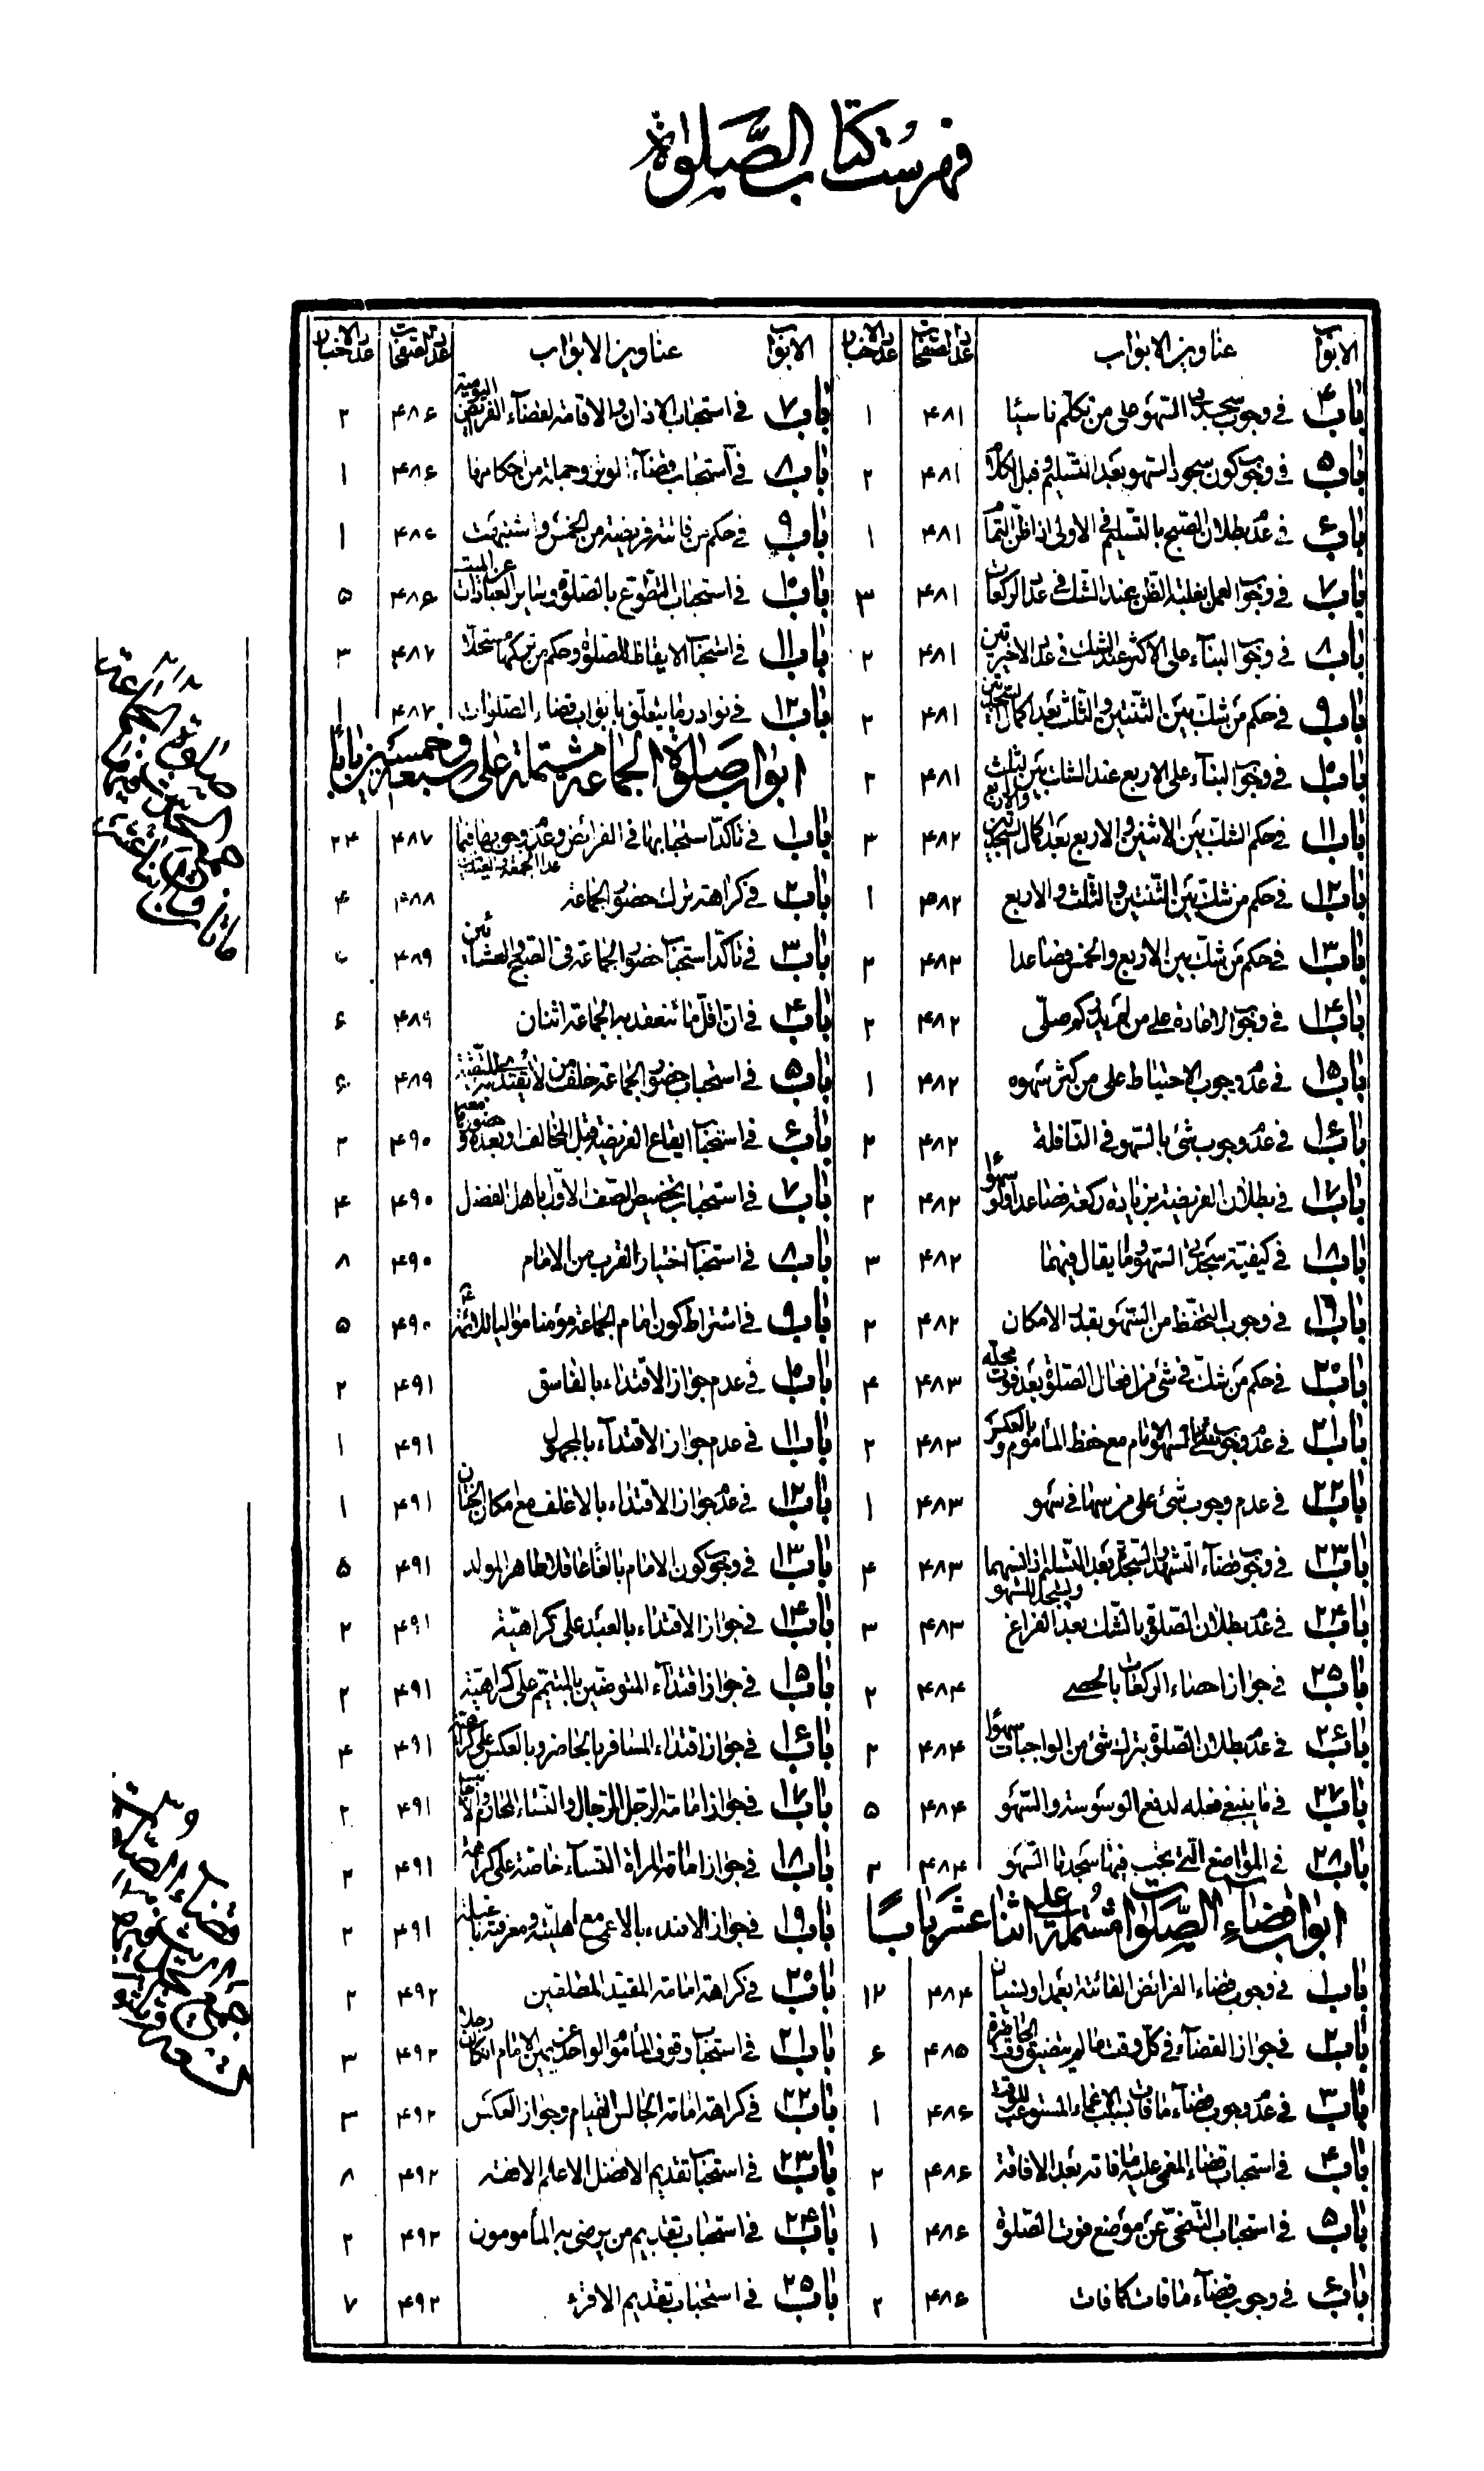 فهرست كتاب الصلوة
الابواب عناوين الابواب عدد الصفحات عدد الاخبار
باب ۴ في وجوب سجدتي السهو على من تكلم ناسيا ۴۸۱ ۱
باب ۵ في وجوب كون سجود السهو بعد التسليم وقبل الكلام ۴۸۱ ۲
باب ۶ في عدم بطلان الصبح بالتسليم في الاولى اذا ظن التمام ۴۸۱ ۱
باب ۷ في وجوب العمل بغلبة الظن عند الشك في عدد الركعات ۴۸۱ ۳
باب ۸ في وجوب البناء على الاكثر عند الشك في عدد الاخيرتين ۴۸۱ ۲
باب ۹ في حكم من شك بين الثنتين والثلث بعد اكمال السجدتين ۴۸۱ ۲
باب ۱۰ في وجوب البناء على الاربع عند الشك بين الثلث والاربع ۴۸۱ ۲
باب ۱۱ في حكم الشك بين الاثنين والاربع بعد اكمال السجدتين ۴۸۲ ۳
باب ۱۲ في حكم من شك بين الثنتين والثلث والاربع ۴۸۲ ۱
باب ۱۳ في حكم من شك بين الاربع والخمس فصاعدا ۴۸۲ ۲
باب ۱۴ في وجوب الاعادة على من لم يدر كم صلى ۴۸۲ ۲
باب ۱۵ في عدم وجوب الاحتياط على من كثر سهوه ۴۸۲ ۱
باب ۱۶ في عدم وجوب شئ بالسهو في النافلة ۴۸۲ ۲
باب ۱۷ في بطلان الفريضة بزيادة ركعة فصاعدا ولو سهوا ۴۸۲ ۲
باب ۱۸ في كيفية سجدتي السهو وما يقال فيهما ۴۸۲ ۳
باب ۱۹ في وجوب التحفظ من السهو بقدر الامكان ۴۸۲ ۲
باب ۲۰ في حكم من شك في شئ من افعال الصلوة بعد فوت محله ۴۸۳ ۴
باب ۲۱ في عدم وجوب شئ لسهو الامام مع حفظ المأموم وبالعكس ۴۸۳ ۲
باب ۲۲ في عدم وجوب شئ على من سها في سهو ۴۸۳ ۱
باب ۲۳ في وجوب قضاء التشهد والسجدة بعد التسليم اذا نسيهما ويسجد للسهو ۴۸۳ ۴
باب ۲۴ في عدم بطلان الصلوة بالشك بعد الفراغ ۴۸۳ ۳
باب ۲۵ في جواز احصاء الركعات بالحصى ۴۸۴ ۲
باب ۲۶ في عدم بطلان الصلوة بترك شئ من الواجبات سهوا ۴۸۴ ۲
باب ۲۷ في ما ينبغي فعله لدفع الوسوسة والسهو ۴۸۴ ۵
باب ۲۸ في المواضع التي يجب فيها سجدتا السهو ۴۸۴ ۲
ابواب قضاء الصلوات مشتملة على اثنا عشر بابا
باب ۱ في وجوب قضاء الفرائض الفائتة بعمد او نسيان ۴۸۴ ۱۲
باب ۲ في جواز القضاء في كل وقت ما لم يتضيق وقت الحاضرة ۴۸۵ ۶
باب ۳ في عدم وجوب قضاء ما فات بسبب الاغماء المستوعب للوقت ۴۸۶ ۱
باب ۴ في استحباب قضاء المغمى عليه ما فاته بعد الافاقة ۴۸۶ ۲
باب ۵ في استحباب التنحي عن موضع فوت الصلوة ۴۸۶ ۱
باب ۶ في وجوب قضاء ما فات كما فات ۴۸۶ ۲
الابواب عناوين الابواب عدد الصفحات عدد الاخبار
باب ۷ في استحباب الاذان والاقامة لقضاء الفرائض اليومية ۴۸۶ ۲
باب ۸ في استحباب قضاء الوتر وجملة من احكامها ۴۸۶ ۱
باب ۹ في حكم من فاتته فريضة من الخمس واشتبهت ۴۸۶ ۱
باب ۱۰ في استحباب التطوع بالصلوة وساير العبادات عن الميت ۴۸۶ ۵
باب ۱۱ في استحباب الايقاظ للصلوة وحكم من تركها مستحلا ۴۸۷ ۳
باب ۱۲ في نوادر ما يتعلق بابواب قضاء الصلوات ۴۸۷ ۱
ابواب صلوة الجماعة مشتملة على سبعة وخمسين بابا
باب ۱ في تاكد استحبابها في الفرائض وعدم وجوبها فيما عدا الجمعة والعيدين ۴۸۷ ۲۴
باب ۲ في كراهة ترك حضور الجماعة ۴۸۸ ۴
باب ۳ في تاكد استحباب حضور الجماعة في الصبح والعشائين ۴۸۹
باب ۴ في ان اقل ما تنعقد به الجماعة اثنان ۴۸۹ ۶
باب ۵ في استحباب حضور الجماعة خلف من لا يقتدى به للتقية ۴۸۹ ۶
باب ۶ في استحباب ايقاع الفريضة قبل المخالف او بعده وحضورها معه ۴۹۰ ۲
باب ۷ في استحباب تخصيص الصف الاول باهل الفضل ۴۹۰ ۴
باب ۸ في استحباب اختيار القرب من الامام ۴۹۰ ۸
باب ۹ في اشتراط كون امام الجماعة مؤمنا مواليا للائمة ۴۹۰ ۵
باب ۱۰ في عدم جواز الاقتداء بالفاسق ۴۹۱ ۲
باب ۱۱ في عدم جواز الاقتداء بالمجهول ۴۹۱ ۱
باب ۱۲ في عدم جواز الاقتداء بالاغلف مع امكان الختان ۴۹۱ ۱
باب ۱۳ في وجوب كون الامام بالغا عاقلا طاهر المولد ۴۹۱ ۵
باب ۱۴ في جواز الاقتداء بالعبد على كراهية ۴۹۱ ۲
باب ۱۵ في جواز اقتداء المتوضين بالمتيمم على كراهية ۴۹۱ ۲
باب ۱۶ في جواز اقتداء المسافر بالحاضر وبالعكس على كراهية ۴۹۱ ۴
باب ۱۷ في جواز امامة الرجل الرجال والنساء المحارم والاجانب ۴۹۱ ۲
باب ۱۸ في جواز امامة المراة النساء خاصة على كراهة ۴۹۱ ۲
باب ۱۹ في جواز الاقتداء بالاعمى مع اهليته ومعرفته بالقبلة ۴۹۱ ۲
باب ۲۰ في كراهة امامة المقيد المطلقين ۴۹۲ ۲
باب ۲۱ في استحباب وقوف المأموم الواحد عن يمين الامام ان كان رجلا ۴۹۲ ۳
باب ۲۲ في كراهة امامة الجالس القيام وجواز العكس ۴۹۲ ۳
باب ۲۳ في استحباب تقديم الافضل الاعلم الافقه ۴۹۲ ۸
باب ۲۴ في استحباب تقديم من يرضى به المأمومون ۴۹۲ ۲
باب ۲۵ في استحباب تقديم الاقرء ۴۹۲ ۷
صلوة الجماعة
قضاء الصلوات